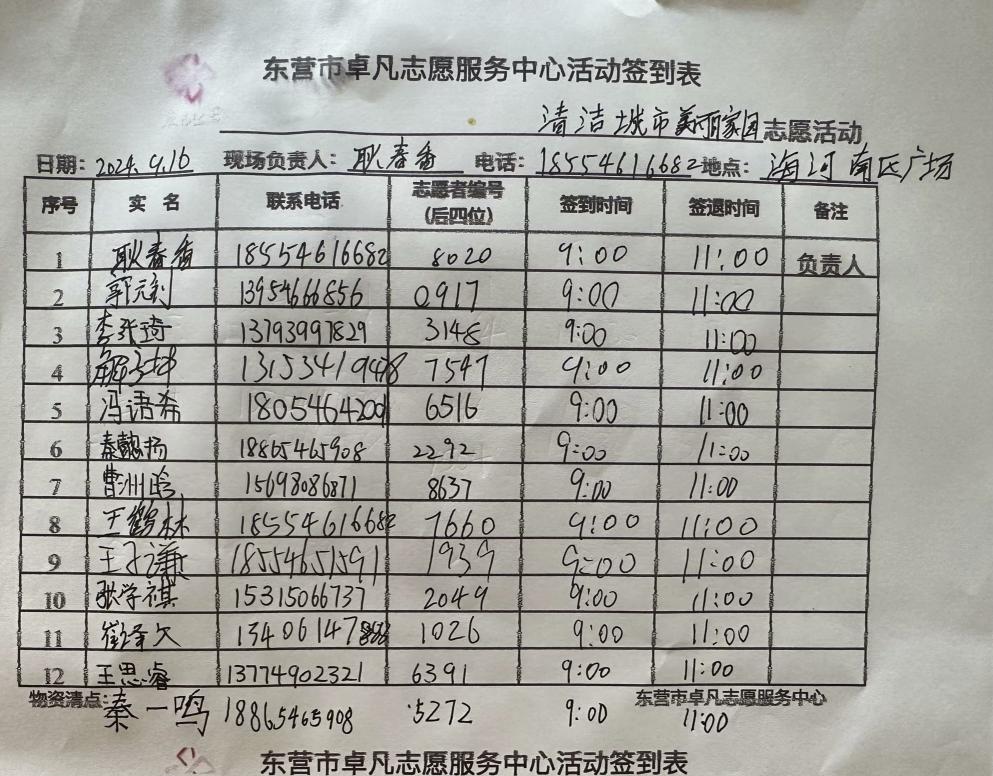 东营市卓凡志愿服务中心活动签到表
清洁城市美丽家园志愿活动
日期：2024.9.16 现场负责人：耿春香 电话：18554616682 地点：海河南区广场
序号 实名 联系电话 志愿者编号（后四位） 签到时间 签退时间 备注
1 耿春香 18554616682 8020 9:00 11:00 负责人
2 郭元利 13954666856 0917 9:00 11:00
3 李张琦 13793997829 3148 9:00 11:00
4 7547 9:00 11:00
5 冯语希 18054642001 6516 9:00 11:00
6 秦懿扬 18865465908 2292 9:00 11:00
7 曹洲晗 15698086871 8637 9:00 11:00
8 王鹤林 18554616682 7660 9:00 11:00
9 王子谦 18554651591 1939 9:00 11:00
10 张学祺 15315066737 2049 9:00 11:00
11 1026 9:00 11:00
12 王思睿 13774902321 6391 9:00 11:00
物资清点： 东营市卓凡志愿服务中心
秦一鸣 18865465908 5272 9:00 11:00
东营市卓凡志愿服务中心活动签到表